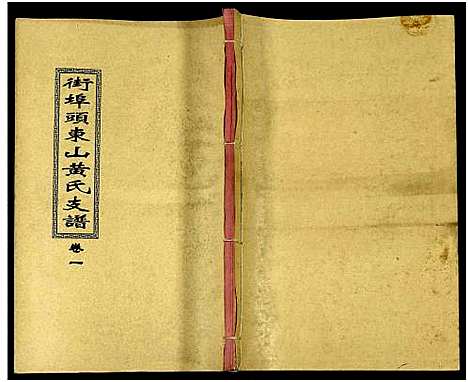 街埠頭東山黃氏支譜
卷一